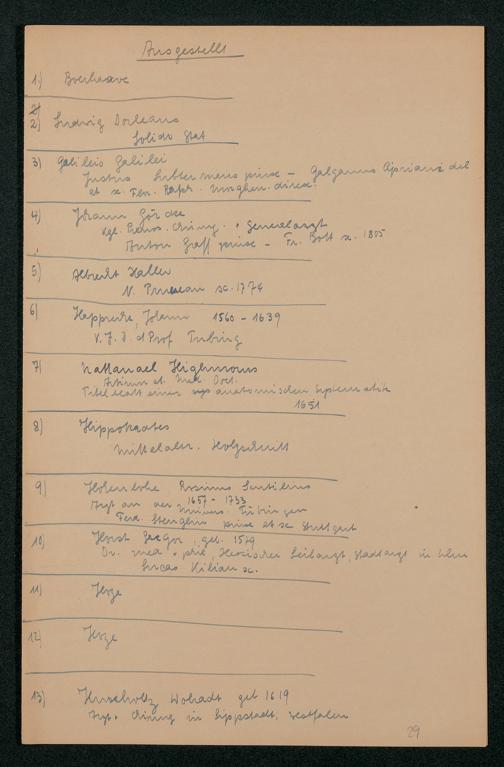 Ausgestellt
1.) Boerhaave
2) Ludwig Dorleans
Solido Stat
3) Galileis Galilei
Justus Suttermans pinx – Galganus Cipriani del
et sc. Fer. Raph. Morghen direx.
4) Johann Görcke
Kgl. Preuss. Chirurg. + Generalarzt
Anton Graff pinx – Fr. Bolt sc. 1805
5) Albrecht Haller
sc. 1774
6) Johann 1560 – 1639
V. J. D. et Prof Tubing
7) Nathanael Highmorus
Artium et Med. Doct.
Titelblatt einer anatomischen Systematik
1651
8) Hippokrates
Mittelalt. Holzschnitt
9) Hohenlohe, Rosinus Lentilius
1657 – 1733
Arzt an der Univers. Tübingen
Ferd. Stenglin pinx et sc Stuttgart
10) Horst Gregor, geb. 1578
Dr. med + phil, Hessischer Leibarzt, Stadtarzt in Ulm
Lucas Kilian sc.
11)
12)
13) geb 1619
Arzt + Chirurg in Lippstadt, Westfalen
29